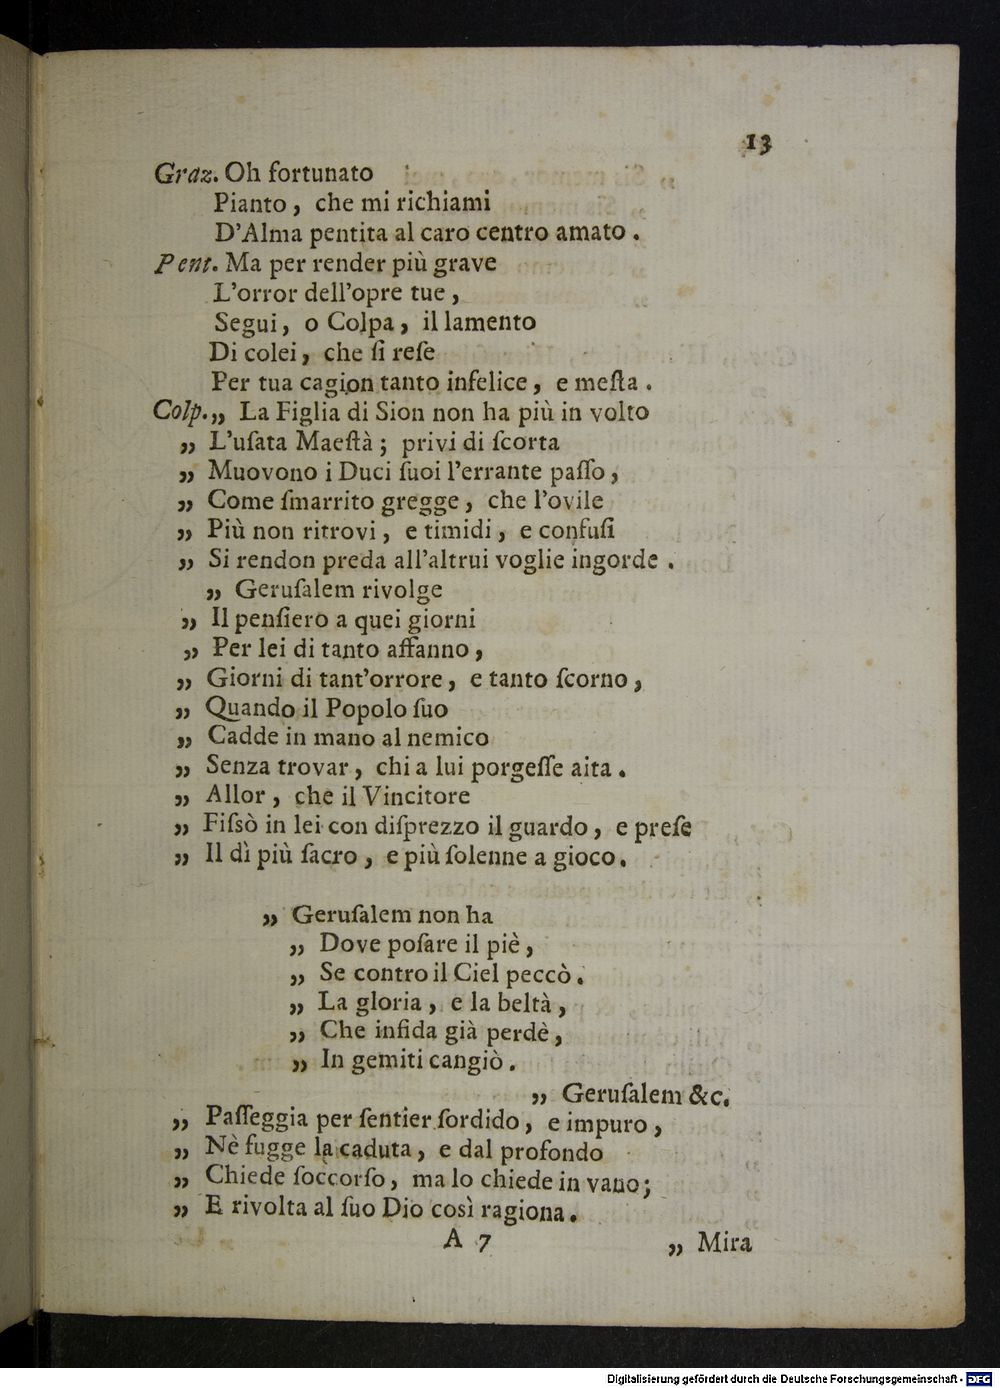 13
Graz. Oh fortunato
Pianto, che mi richiami
D'Alma pentita al caro centro amato.
Pent. Ma per render più grave
L'orror dell'opre tue,
Segui, o Colpa, il lamento
Di colei, che ſi reſe
Per tua cagion tanto infelice, e meſta.
Colp.„ La Figlia di Sion non ha più in volto
„ L'uſata Maeſtà; privi di ſcorta
„ Muovono i Duci ſuoi l'errante paſſo,
„ Come ſmarrito gregge, che l'ovile
„ Più non ritrovi, e timidi, e confuſi
„ Si rendon preda all'altrui voglie ingorde.
„ Geruſalem rivolge
„ Il penſiero a quei giorni
„ Per lei di tanto affanno,
„ Giorni di tant'orrore, e tanto ſcorno,
„ Quando il Popolo ſuo
„ Cadde in mano al nemico
„ Senza trovar, chi a lui porgeſſe aita.
„ Allor, che il Vincitore
„ Fiſsò in lei con diſprezzo il guardo, e preſe
„ Il dì più ſacro, e più ſolenne a gioco.
„ Geruſalem non ha
„ Dove poſare il piè,
„ Se contro il Ciel peccò.
„ La gloria, e la beltà,
„ Che infida già perdè,
„ In gemiti cangiò.
„ Geruſalem &c.
„ Paſſeggia per ſentier ſordido, e impuro,
„ Nè fugge la caduta, e dal profondo
„ Chiede ſoccorſo, ma lo chiede in vano;
„ E rivolta al ſuo Dio così ragiona.
A 7
„ Mira
Digitalisierung gefördert durch die Deutsche Forschungsgemeinschaft - DFG